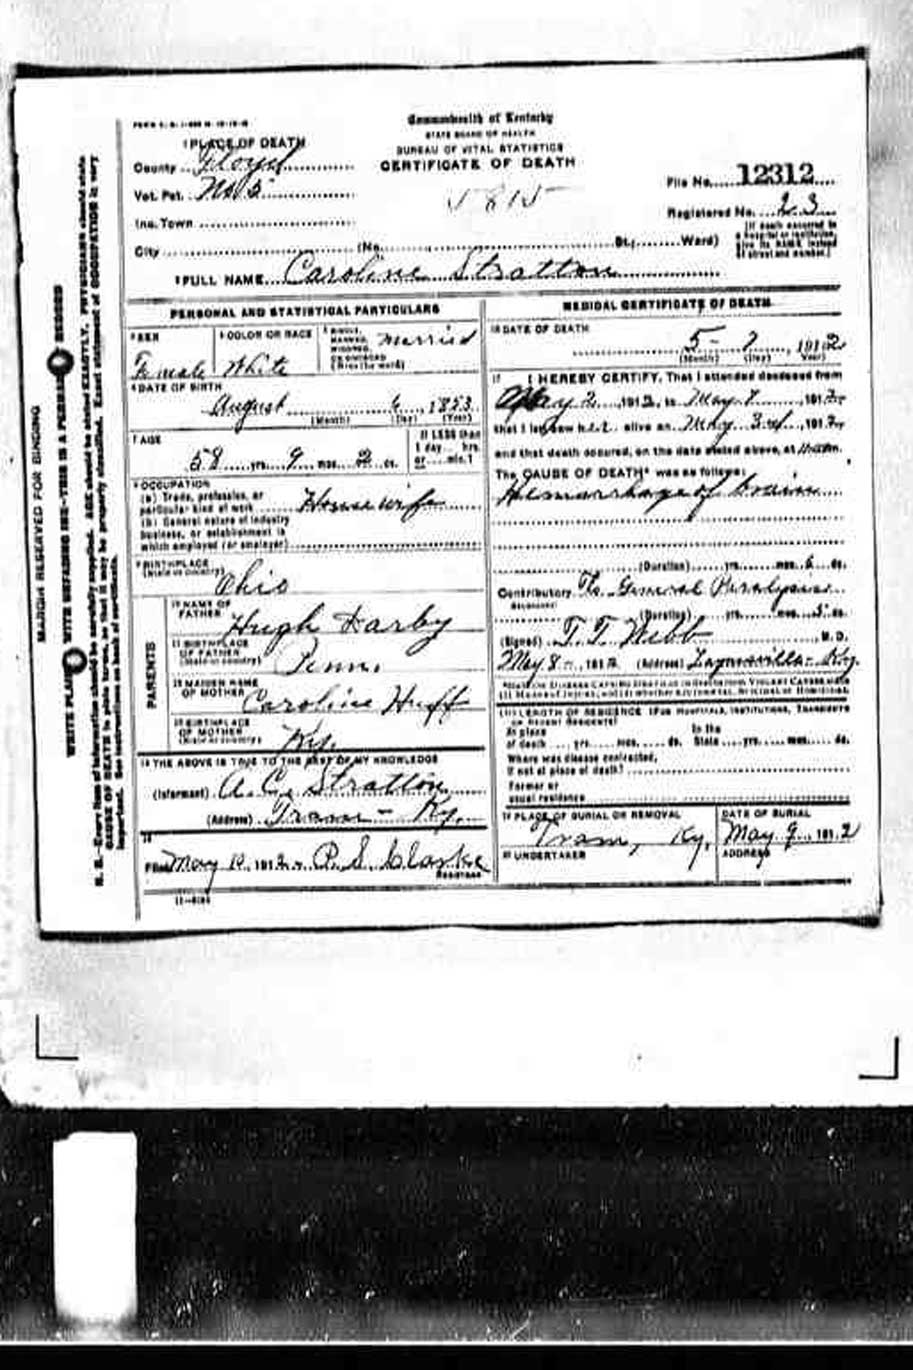 Commonwealth of Kentucky
STATE BOARD OF HEALTH
BUREAU OF VITAL STATISTICS
CERTIFICATE OF DEATH
1 PLACE OF DEATH
County Floyd
Vot. Pct. No 5
Inc. Town
City (No. St.; Ward)
File No. 12312
Registered No. 23
(If death occurred in a hospital or institution, give its NAME instead of street and number.)
2 FULL NAME Caroline Stratton
PERSONAL AND STATISTICAL PARTICULARS
3 SEX Female
4 COLOR OR RACE White
5 SINGLE, MARRIED, WIDOWED, OR DIVORCED (Write the word) Married
6 DATE OF BIRTH
August 6, 1853
(Month) (Day) (Year)
7 AGE
58 yrs. 9 mos. 2 ds.
If LESS than 1 day... hrs. or... min.?
8 OCCUPATION
(a) Trade, profession, or particular kind of work Housewife
(b) General nature of industry business, or establishment in which employed (or employer)
9 BIRTHPLACE
(State or country) Ohio
PARENTS
10 NAME OF FATHER Hugh Darby
11 BIRTHPLACE OF FATHER (State or country) Penn.
12 MAIDEN NAME OF MOTHER Caroline Huff
13 BIRTHPLACE OF MOTHER (State or country) Ky.
14 THE ABOVE IS TRUE TO THE BEST OF MY KNOWLEDGE
(Informant) A. C. Stratton
(Address) Tram - Ky.
15
Filed May 10, 1912 P. S. Clarke
Registrar
11-5184
MEDICAL CERTIFICATE OF DEATH
16 DATE OF DEATH
5 - 7, 1912
(Month) (Day) (Year)
17 I HEREBY CERTIFY, That I attended deceased from
May 2, 1912, to May 8, 1912
that I last saw her alive on May 3rd, 1912
and that death occurred, on the date stated above, at
The CAUSE OF DEATH* was as follows:
Hemorrhage of brain
(Duration) yrs. mos. 6 ds.
Contributory General Paralysis
(Duration) yrs. mos. 5 ds.
(Signed) T. T. Webb M. D.
May 8, 1912 (Address) Ky.
(18) LENGTH OF RESIDENCE (FOR HOSPITALS, INSTITUTIONS, TRANSIENTS OR RECENT RESIDENTS)
At place of death yrs. mos. ds. In the State yrs. mos. ds.
Where was disease contracted, if not at place of death?
Former or usual residence
19 PLACE OF BURIAL OR REMOVAL
Tram, Ky.
DATE OF BURIAL
May 9, 1912
20 UNDERTAKER
ADDRESS
MARGIN RESERVED FOR BINDING
WRITE PLAINLY WITH UNFADING INK—THIS IS A PERMANENT RECORD
N. B.—Every item of information should be carefully supplied. AGE should be stated EXACTLY. PHYSICIANS should state
CAUSE OF DEATH in plain terms, so that it may be properly classified. Exact statement of OCCUPATION is very
important. See instructions on back of certificate.